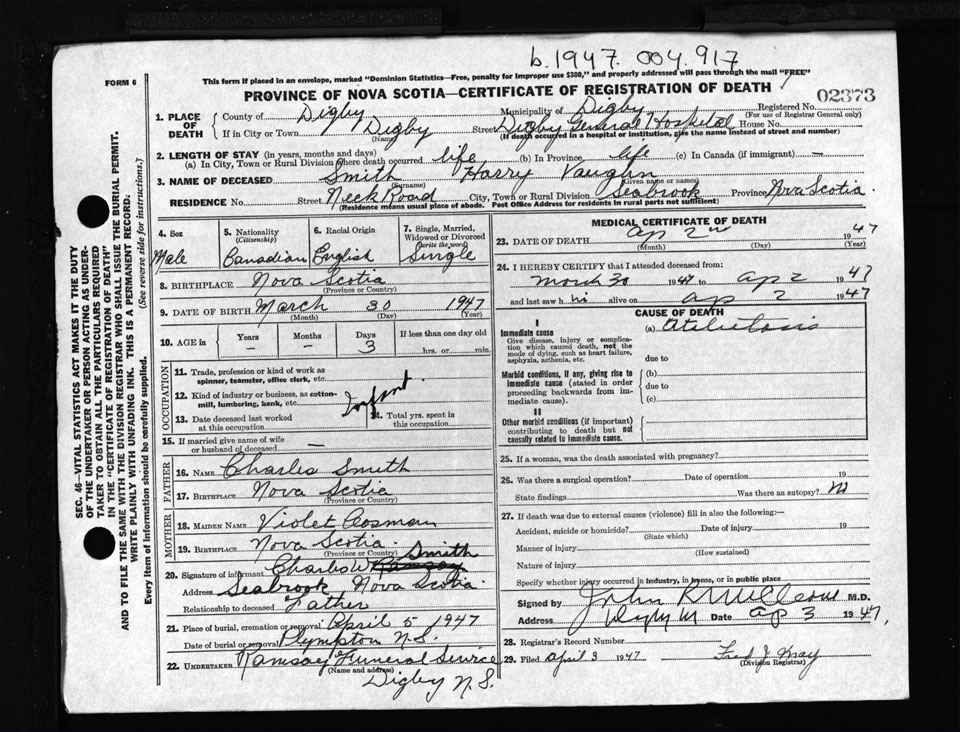 b.1947. 004.917
FORM 6
This form if placed in an envelope, marked "Dominion Statistics—Free, penalty for improper use $300," and properly addressed will pass through the mail "FREE"
PROVINCE OF NOVA SCOTIA—CERTIFICATE OF REGISTRATION OF DEATH
02373
1. PLACE OF DEATH
County of Digby Municipality of Digby Registered No.
(For use of Registrar General only)
If in City or Town Digby Street Digby General Hospital House No.
(Name) (If death occurred in a hospital or institution, give the name instead of street and number)
2. LENGTH OF STAY (in years, months and days)
(a) In City, Town or Rural Division where death occurred life (b) In Province life (c) In Canada (if immigrant) —
3. NAME OF DECEASED Smith Harry Vaughn
(Surname) (Given name or names)
RESIDENCE No. Street Neck Road City, Town or Rural Division Seabrook Province Nova Scotia.
(Residence means usual place of abode. Post Office Address for residents in rural parts not sufficient)
4. Sex
Male
5. Nationality
(Citizenship)
Canadian
6. Racial Origin
English
7. Single, Married, Widowed or Divorced
(write the word)
Single
8. BIRTHPLACE Nova Scotia
(Province or Country)
9. DATE OF BIRTH March 30 1947
(Month) (Day) (Year)
10. AGE in
Years Months Days If less than one day old
— — 3 hrs. or min.
OCCUPATION
11. Trade, profession or kind of work as spinner, teamster, office clerk, etc.
12. Kind of industry or business, as cotton-mill, lumbering, bank, etc. Infant
13. Date deceased last worked at this occupation
14. Total yrs. spent in this occupation
15. If married give name of wife or husband of deceased —
FATHER
16. NAME Charles Smith
17. BIRTHPLACE Nova Scotia
(Province or Country)
MOTHER
18. MAIDEN NAME Violet Cosman
19. BIRTHPLACE Nova Scotia.
(Province or Country)
20. Signature of informant Charles W Ramsay Smith
Address Seabrook Nova Scotia
Relationship to deceased Father
21. Place of burial, cremation or removal April 5 1947
Date of burial or removal Plympton N.S.
22. UNDERTAKER Ramsay Funeral Service
(Name and address)
Digby N.S.
MEDICAL CERTIFICATE OF DEATH
23. DATE OF DEATH ap 2 1947
(Month) (Day) (Year)
24. I HEREBY CERTIFY that I attended deceased from:
March 30 1947 to ap 2 1947
and last saw h alive on ap 2 1947
CAUSE OF DEATH
I
Immediate cause
Give disease, injury or complication which caused death, not the mode of dying, such as heart failure, asphyxia, asthenia, etc.
(a) Atelectasis
due to
Morbid conditions, if any, giving rise to immediate cause (stated in order proceeding backwards from immediate cause).
(b)
due to
(c)
II
Other morbid conditions (if important) contributing to death but not causally related to immediate cause.
25. If a woman, was the death associated with pregnancy?
26. Was there a surgical operation? Date of operation 19
State findings Was there an autopsy? No
27. If death was due to external causes (violence) fill in also the following:—
Accident, suicide or homicide? Date of injury 19
(State which)
Manner of injury
(How sustained)
Nature of injury
Specify whether injury occurred in industry, in home, or in public place
Signed by M.D.
Address Digby NS Date ap 3 1947,
28. Registrar's Record Number
29. Filed April 3 1947
(Division Registrar)
SEC. 46—VITAL STATISTICS ACT MAKES IT THE DUTY
OF THE UNDERTAKER OR PERSON ACTING AS UNDER-
TAKER TO OBTAIN ALL THE PARTICULARS REQUIRED
IN THE "CERTIFICATE OF REGISTRATION OF DEATH"
AND TO FILE THE SAME WITH THE DIVISION REGISTRAR WHO SHALL ISSUE THE BURIAL PERMIT.
WRITE PLAINLY WITH UNFADING INK. THIS IS A PERMANENT RECORD.
Every item of Information should be carefully supplied. (See reverse side for instructions.)